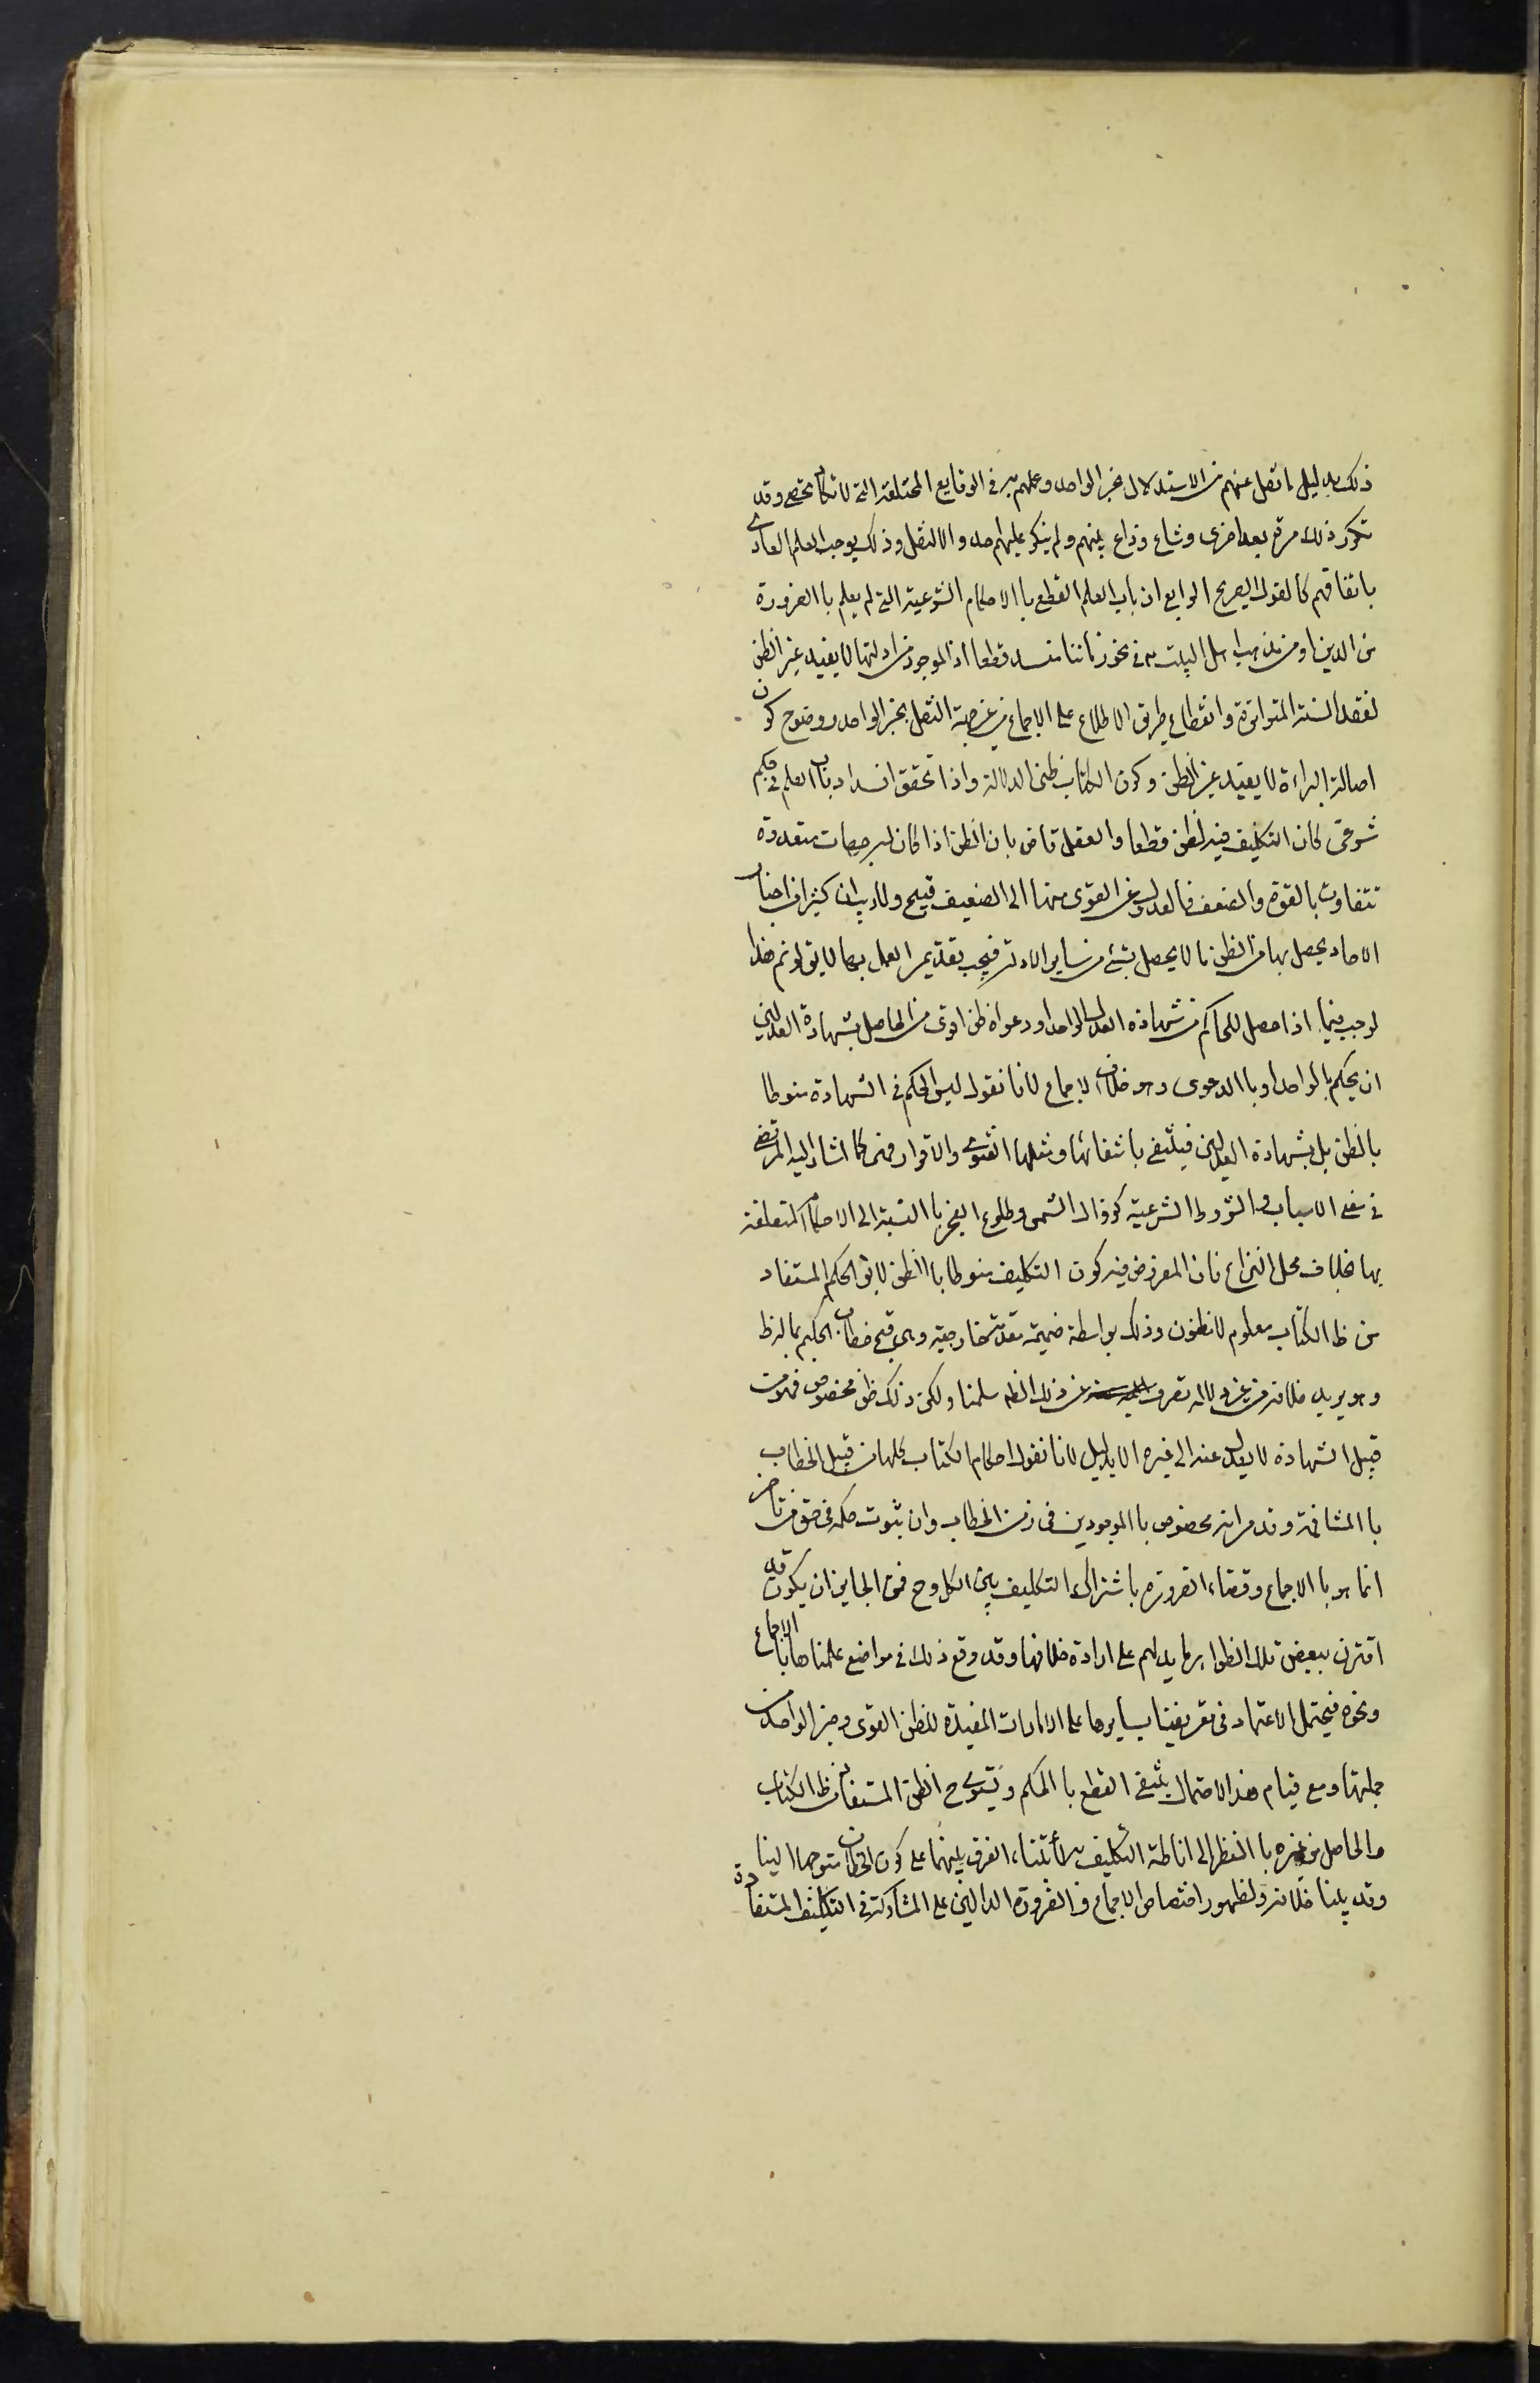 ذلك بدليل ما نقل عنهم من الاستدلال بخبر الواحد وعملهم به في الوقايع المختلفة التي لا تكاد تحصى وقد
تكرر ذلك مرة بعد اخرى وشاع وذاع بينهم ولم ينكر عليهم احد والا لنقل وذلك يوجب العلم العادي
باتفاقهم كالقول الصريح الرابع ان باب العلم القطعي با الاحكام الشرعية التي لم يعلم با الضرورة
من الدين او من مذهب اهل البيت ع في نحو زماننا منسد قطعا اذ الموجود من ادلتها لا يفيد غير الظن
لفقد السنة المتواترة وانقطاع طريق الاطلاع على الاجماع من غير جهة النقل بخبر الواحد ووضوح كون
اصالة البراءة لا يفيد غير الظن وكون الكتاب ظني الدلالة واذا تحقق انسداد باب العلم في حكم
شرعي كان التكليف فيه بالظن قطعا والعقل قاض بان الظن اذا كان له جهات متعددة
تتفاوت بالقوة والضعف فالعدول عن القوى منها الى الضعيف قبيح ولا ريب ان كثيرا من اخبار
الاحاد يحصل بها من الظن ما لا يحصل بشئ من ساير الادلة فيجب تقديم العمل بها لا يق لو تم هذا
لوجب فيما اذا حصل للحاكم من شهادة العدل الواحد او دعواه ظن اقوى من الحاصل بشهادة العدلين
ان يحكم بالواحد او با الدعوى وهو خلاف الاجماع لانا نقول ليس الحكم في الشهادة منوطا
بالظن بل بشهادة العدلين فينتفى بانتفائها ومثلها الفتوى والاقرار فهي كما اشار اليه المرتضى
في معنى الاسباب والشروط الشرعية كزوال الشمس وطلوع الفجر با النسبة الى الاحكام المتعلقة
بها بخلاف محل النزاع فان المفروض فيه كون التكليف منوطا با الظن لا يق الحكم المستفاد
من ظ الكتاب معلوم لا مظنون وذلك بواسطة ضميمة مقدمة خارجية وهي قبح خطاب الحكيم بما له ظ
وهو يريد خلافه من غير دلالة تصرف عن ذلك الظ سلمنا ولكن ذلك ظن مخصوص فهو من
قبيل الشهادة لا يعدل عنه الى غيره الا بدليل لانا نقول احكام الكتاب كلها من قبيل الخطاب
با المشافهة وقد مر انه مخصوص با الموجودين في زمن الخطاب وان ثبوت حكمه في حق من تاخر
انما هو با الاجماع وقضاء الضرورة باشتراك التكليف بين الكل وح فمن الجايز ان يكون قد
اقترن ببعض تلك الظواهر ما يدلهم على ارادة خلافها وقد وقع ذلك في مواضع علمناها بالاجماع
ونحوه فيحتمل الاعتماد في تعريفنا بسايرها على الامارات المفيدة للظن القوى وخبر الواحد من
جملتها ومع قيام هذا الاحتمال ينتفي القطع با الحكم ويستوي ح الظن المستفاد من ظ الكتاب
والحاصل من غيره با النظر الى اناطة التكليف به لابتناء الفرق بينهما على كون الخطاب متوجها الينا
وقد بينا خلافه ولظهور اختصاص الاجماع والضرورة الدالين على المشاركة في التكليف المستفادة